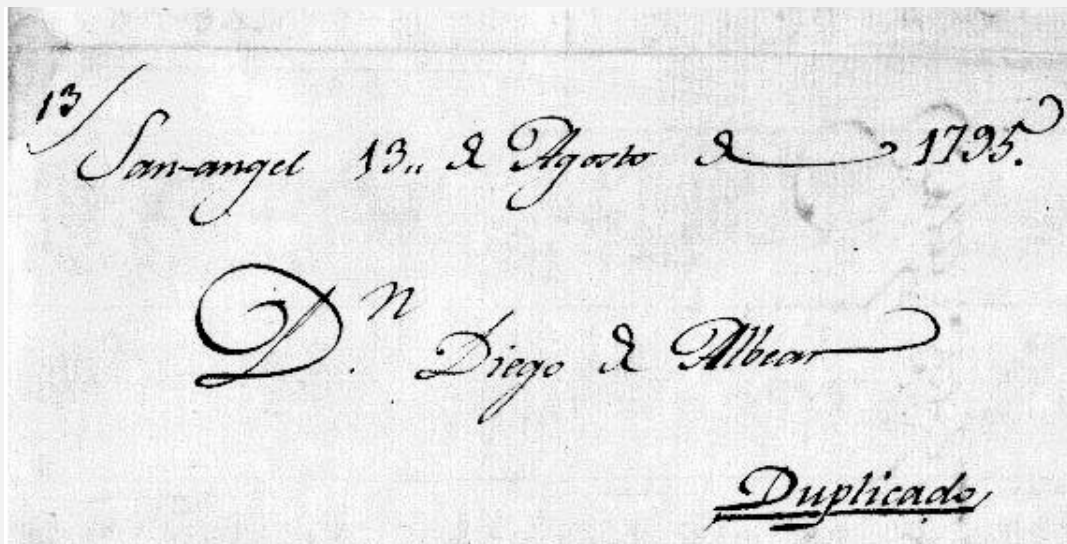 13/
San-angel 13,, de Agosto de 1795.
D.n Diego de Albear
Duplicado